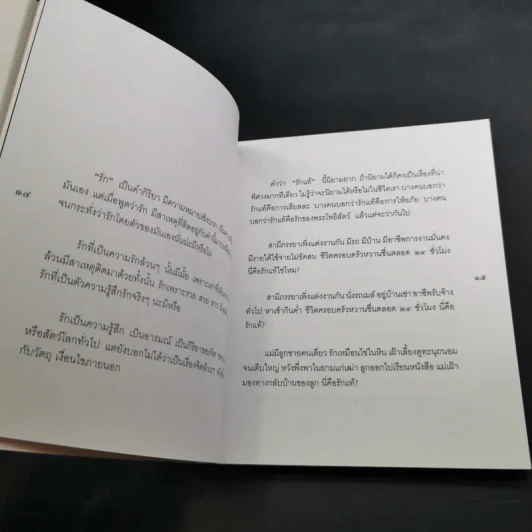 ๑๔
"รัก" เป็นคำกิริยา มีความหมายเชิงบวก
มันเอง แต่เมื่อพูดว่ารัก มีสาเหตุที่ติดอยู่กับคำนี้
จนกระทั่งว่ารักโดยตัวของมันเองมันน่ะมีหรือไม่
รักที่เป็นความรักล้วนๆ นั้นมีมั้ย เพราะ
ล้วนมีสาเหตุติดมาด้วยทั้งนั้น รักเพราะรวย สวย
รักที่เป็นตัวความรู้สึกรักจริงๆ น่ะมีหรือ
รักเป็นความรู้สึก เป็นอารมณ์ เป็นกิริยาของจิต
หรือสัตว์โลกทั่วไป แต่ยังบอกไม่ได้ว่าเป็นเรื่องจิตล้วนๆ
กับวัตถุ เงื่อนไขภายนอก
คำว่า "รักแท้" นี้นิยามยาก ถ้านิยามได้ก็คงเป็นเรื่องที่น่า
พิศวงมากทีเดียว ไม่รู้ว่าจะนิยามได้หรือไม่ในชีวิตเรา บางคนบอกว่า
รักแท้คือการเสียสละ บางคนบอกว่ารักแท้คือการให้อภัย บางคน
บอกว่ารักแท้คือรักของพระโพธิสัตว์ แล้วแต่จะว่ากันไป
สามีภรรยาเพิ่งแต่งงานกัน มีรถ มีบ้าน มีอาชีพการงานมั่นคง
มีรายได้ใช้จ่ายไม่ขัดสน ชีวิตครอบครัวหวานชื่นตลอด ๒๔ ชั่วโมง
นี่คือรักแท้ใช่ไหม?
๑๕
สามีภรรยาเพิ่งแต่งงานกัน นั่งรถเมล์ อยู่บ้านเช่า อาชีพรับจ้าง
ทั่วไป หาเช้ากินค่ำ ชีวิตครอบครัวหวานชื่นตลอด ๒๔ ชั่วโมง นี่คือ
รักแท้?
แม่มีลูกชายคนเดียว รักเหมือนไข่ในหิน เฝ้าเลี้ยงดูทะนุถนอม
จนเติบใหญ่ หวังพึ่งพาในยามแก่เฒ่า ลูกออกไปเรียนหนังสือ แม่เฝ้า
มองทางกลับบ้านของลูก นี่คือรักแท้?